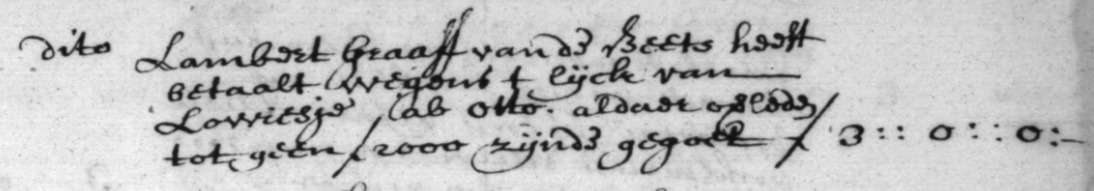 dito Lambert Graaff van de Beets heeft
betaalt wegens t lijck van
Lowiesje Cab otto. aldaer oveleden
tot geen / 2000 zijnde gegoet / 3 :: 0 :: 0 :-